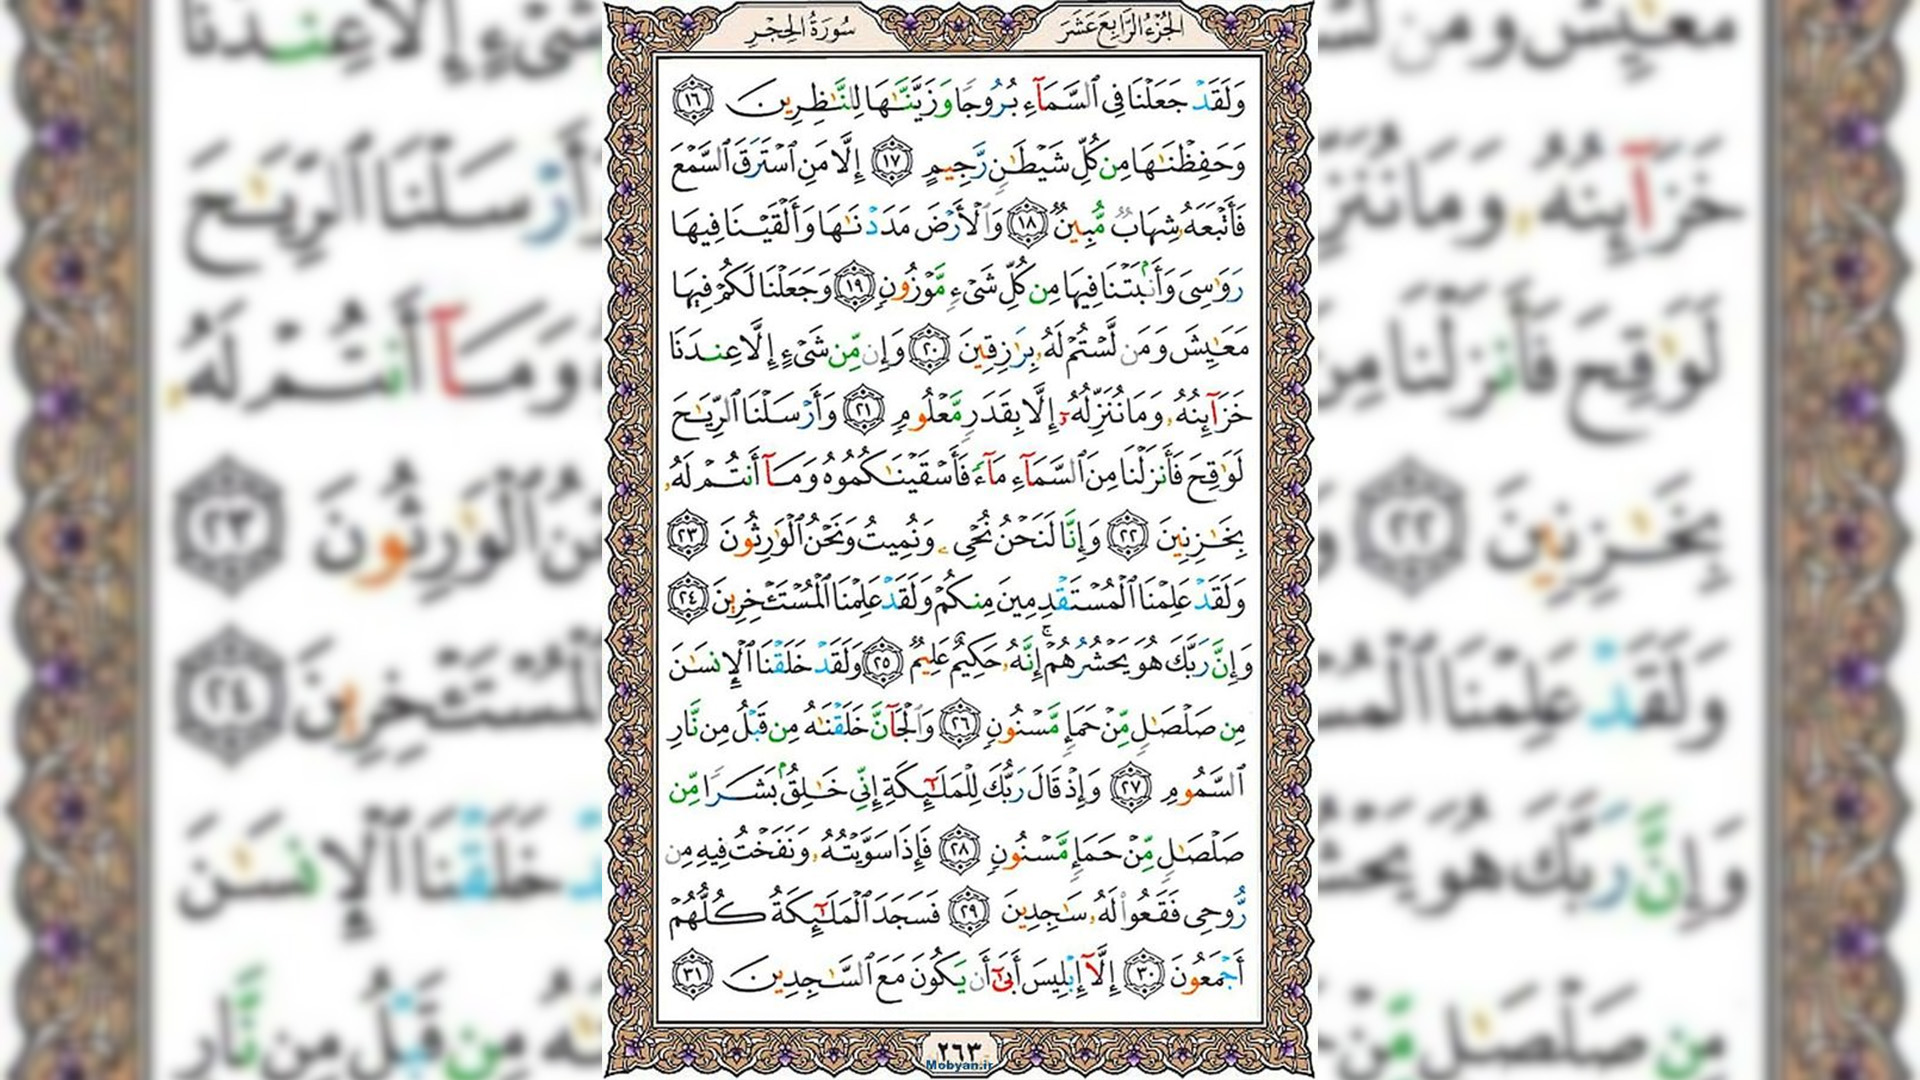 الجُزْءُ الرَّابِعَ عَشَرَ
سُورَةُ الحِجْرِ
وَلَقَدْ جَعَلْنَا فِي ٱلسَّمَآءِ بُرُوجٗا وَزَيَّنَّٰهَا لِلنَّٰظِرِينَ ١٦
وَحَفِظْنَٰهَا مِن كُلِّ شَيْطَٰنٖ رَّجِيمٍ ١٧ إِلَّا مَنِ ٱسْتَرَقَ ٱلسَّمْعَ
فَأَتْبَعَهُۥ شِهَابٞ مُّبِينٞ ١٨ وَٱلْأَرْضَ مَدَدْنَٰهَا وَأَلْقَيْنَا فِيهَا
رَوَٰسِيَ وَأَنۢبَتْنَا فِيهَا مِن كُلِّ شَيْءٖ مَّوْزُونٖ ١٩ وَجَعَلْنَا لَكُمْ فِيهَا
مَعَٰيِشَ وَمَن لَّسْتُمْ لَهُۥ بِرَٰزِقِينَ ٢٠ وَإِن مِّن شَيْءٍ إِلَّا عِندَنَا
خَزَآئِنُهُۥ وَمَا نُنَزِّلُهُۥٓ إِلَّا بِقَدَرٖ مَّعْلُومٖ ٢١ وَأَرْسَلْنَا ٱلرِّيَٰحَ
لَوَٰقِحَ فَأَنزَلْنَا مِنَ ٱلسَّمَآءِ مَآءٗ فَأَسْقَيْنَٰكُمُوهُ وَمَآ أَنتُمْ لَهُۥ
بِخَٰزِنِينَ ٢٢ وَإِنَّا لَنَحْنُ نُحْيِۦ وَنُمِيتُ وَنَحْنُ ٱلْوَٰرِثُونَ ٢٣
وَلَقَدْ عَلِمْنَا ٱلْمُسْتَقْدِمِينَ مِنكُمْ وَلَقَدْ عَلِمْنَا ٱلْمُسْتَـْٔخِرِينَ ٢٤
وَإِنَّ رَبَّكَ هُوَ يَحْشُرُهُمْۚ إِنَّهُۥ حَكِيمٌ عَلِيمٞ ٢٥ وَلَقَدْ خَلَقْنَا ٱلْإِنسَٰنَ
مِن صَلْصَٰلٖ مِّنْ حَمَإٖ مَّسْنُونٖ ٢٦ وَٱلْجَآنَّ خَلَقْنَٰهُ مِن قَبْلُ مِن نَّارِ
ٱلسَّمُومِ ٢٧ وَإِذْ قَالَ رَبُّكَ لِلْمَلَٰٓئِكَةِ إِنِّي خَٰلِقُۢ بَشَرٗا مِّن
صَلْصَٰلٖ مِّنْ حَمَإٖ مَّسْنُونٖ ٢٨ فَإِذَا سَوَّيْتُهُۥ وَنَفَخْتُ فِيهِ مِن
رُّوحِي فَقَعُوا۟ لَهُۥ سَٰجِدِينَ ٢٩ فَسَجَدَ ٱلْمَلَٰٓئِكَةُ كُلُّهُمْ
أَجْمَعُونَ ٣٠ إِلَّآ إِبْلِيسَ أَبَىٰٓ أَن يَكُونَ مَعَ ٱلسَّٰجِدِينَ ٣١
٢٦٣
Mobyan.ir